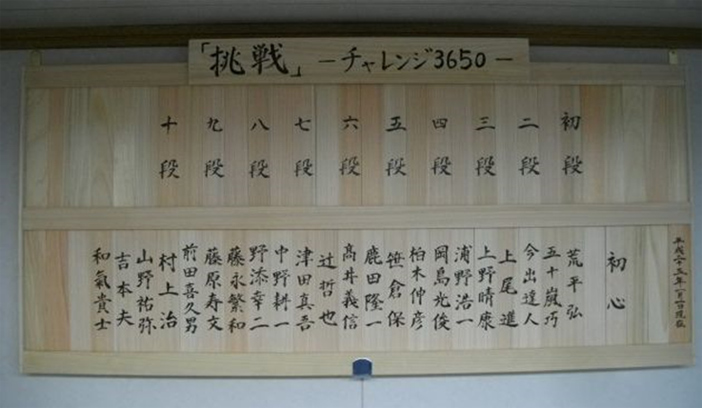 「挑戦」 －チャレンジ3650－
初段
二段
三段
四段
五段
六段
七段
八段
九段
十段
平成二十五年一月一日現在
初心
荒平弘
五十嵐巧
今出達人
上尾進
上野晴康
浦野浩一
岡島光俊
柏木伸彦
笹倉保
鹿田隆一
高井義信
辻哲也
津田真吾
中野耕一
野添幸二
藤永繁和
藤原寿文
前田喜久男
村上治
山野祐弥
吉本夫
和氣貴士